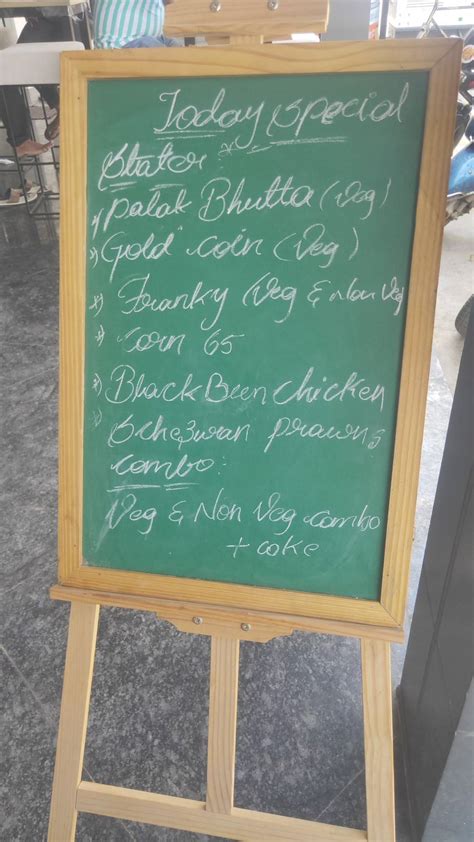 Today Special
Stater :-
*) Palak Bhutta (Veg)
*) Gold coin (Veg)
*) Franky (Veg & Non Veg
*) Corn 65
*) Black Been chicken
*) Schezwan prawns
combo:
Veg & Non Veg combo
+ coke